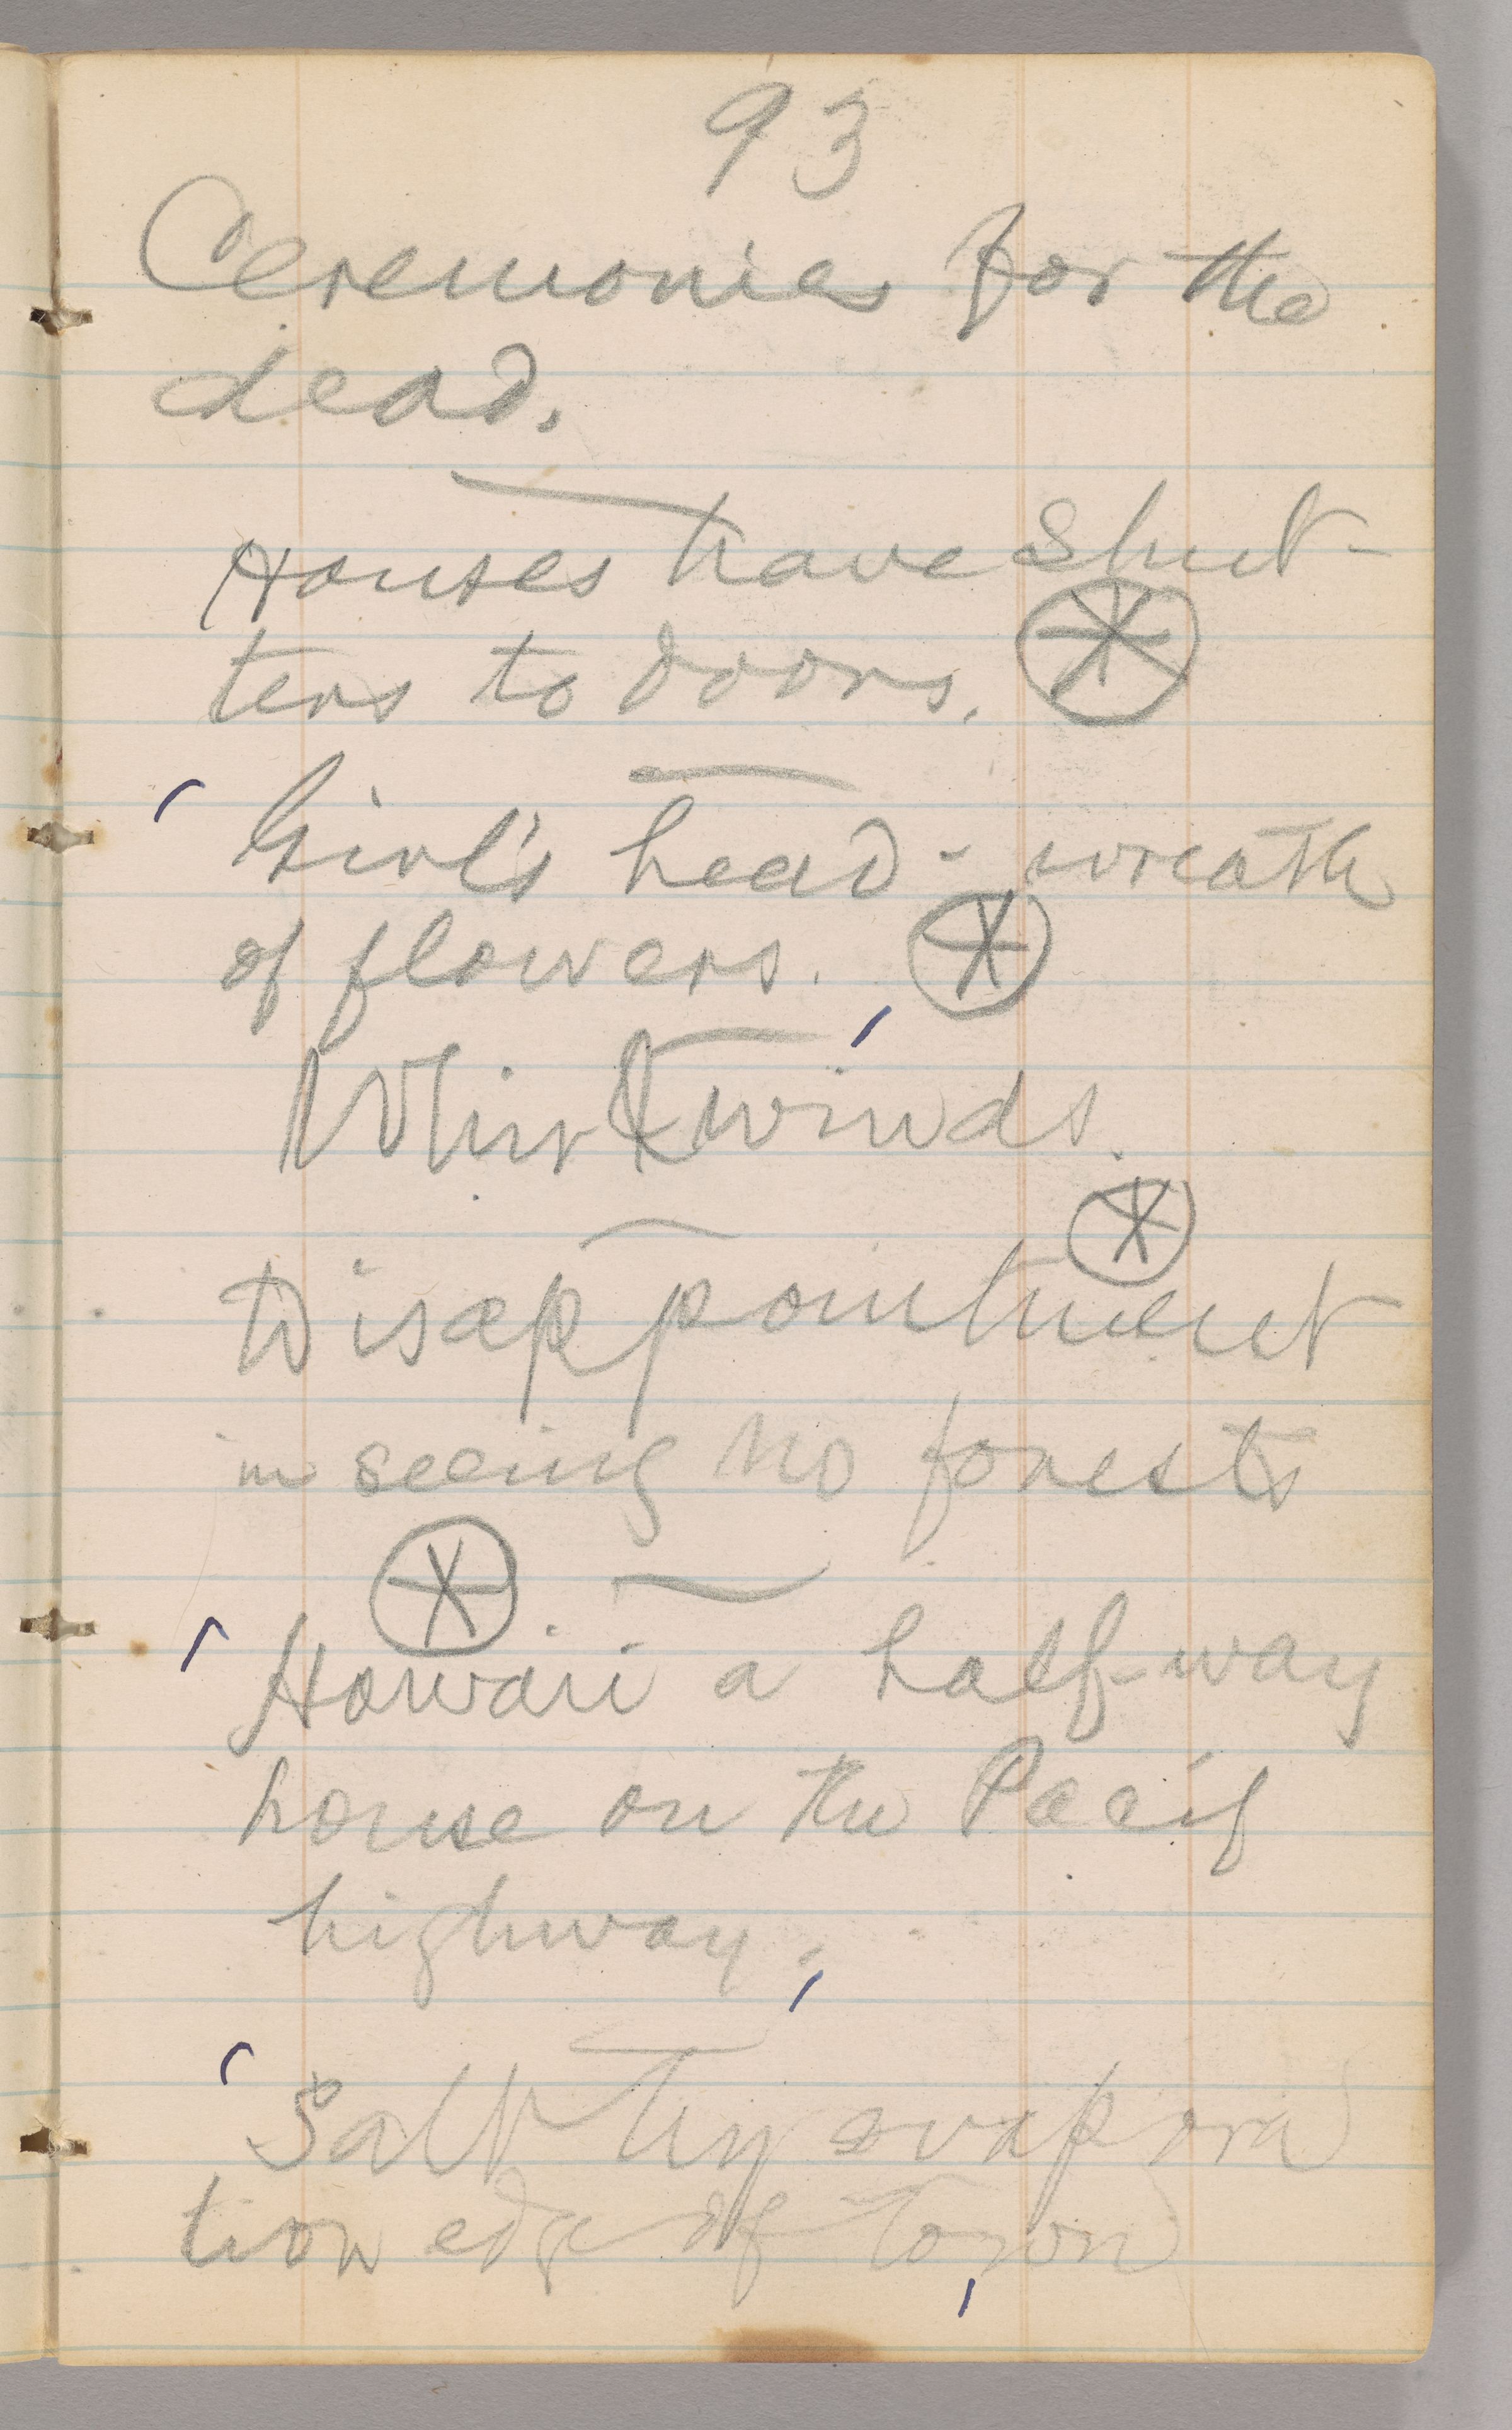 93
Ceremonies for the
dead.
Houses have shut-
ters to doors.
Girl's head-wreath
of flowers.
Whirlwinds.
Disappointment
in seeing no forests
Hawaii a half-way
house on the Pacif
highway.
Salt by evapora
tion edge of town